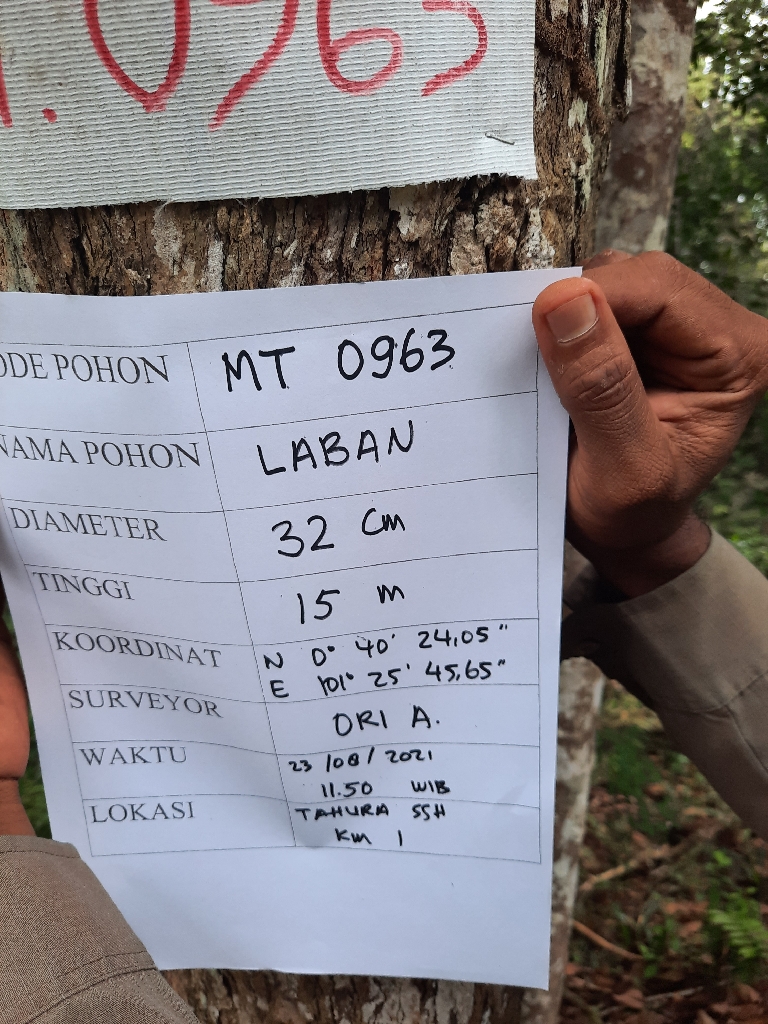 . 0963
ODE POHON MT 0963
NAMA POHON LABAN
DIAMETER 32 Cm
TINGGI 15 m
KOORDINAT N 0° 40' 24,05"
E 101° 25' 45,65"
SURVEYOR ORI A.
WAKTU 23/08/2021
11.50 WIB
LOKASI TAHURA SSH
KM 1